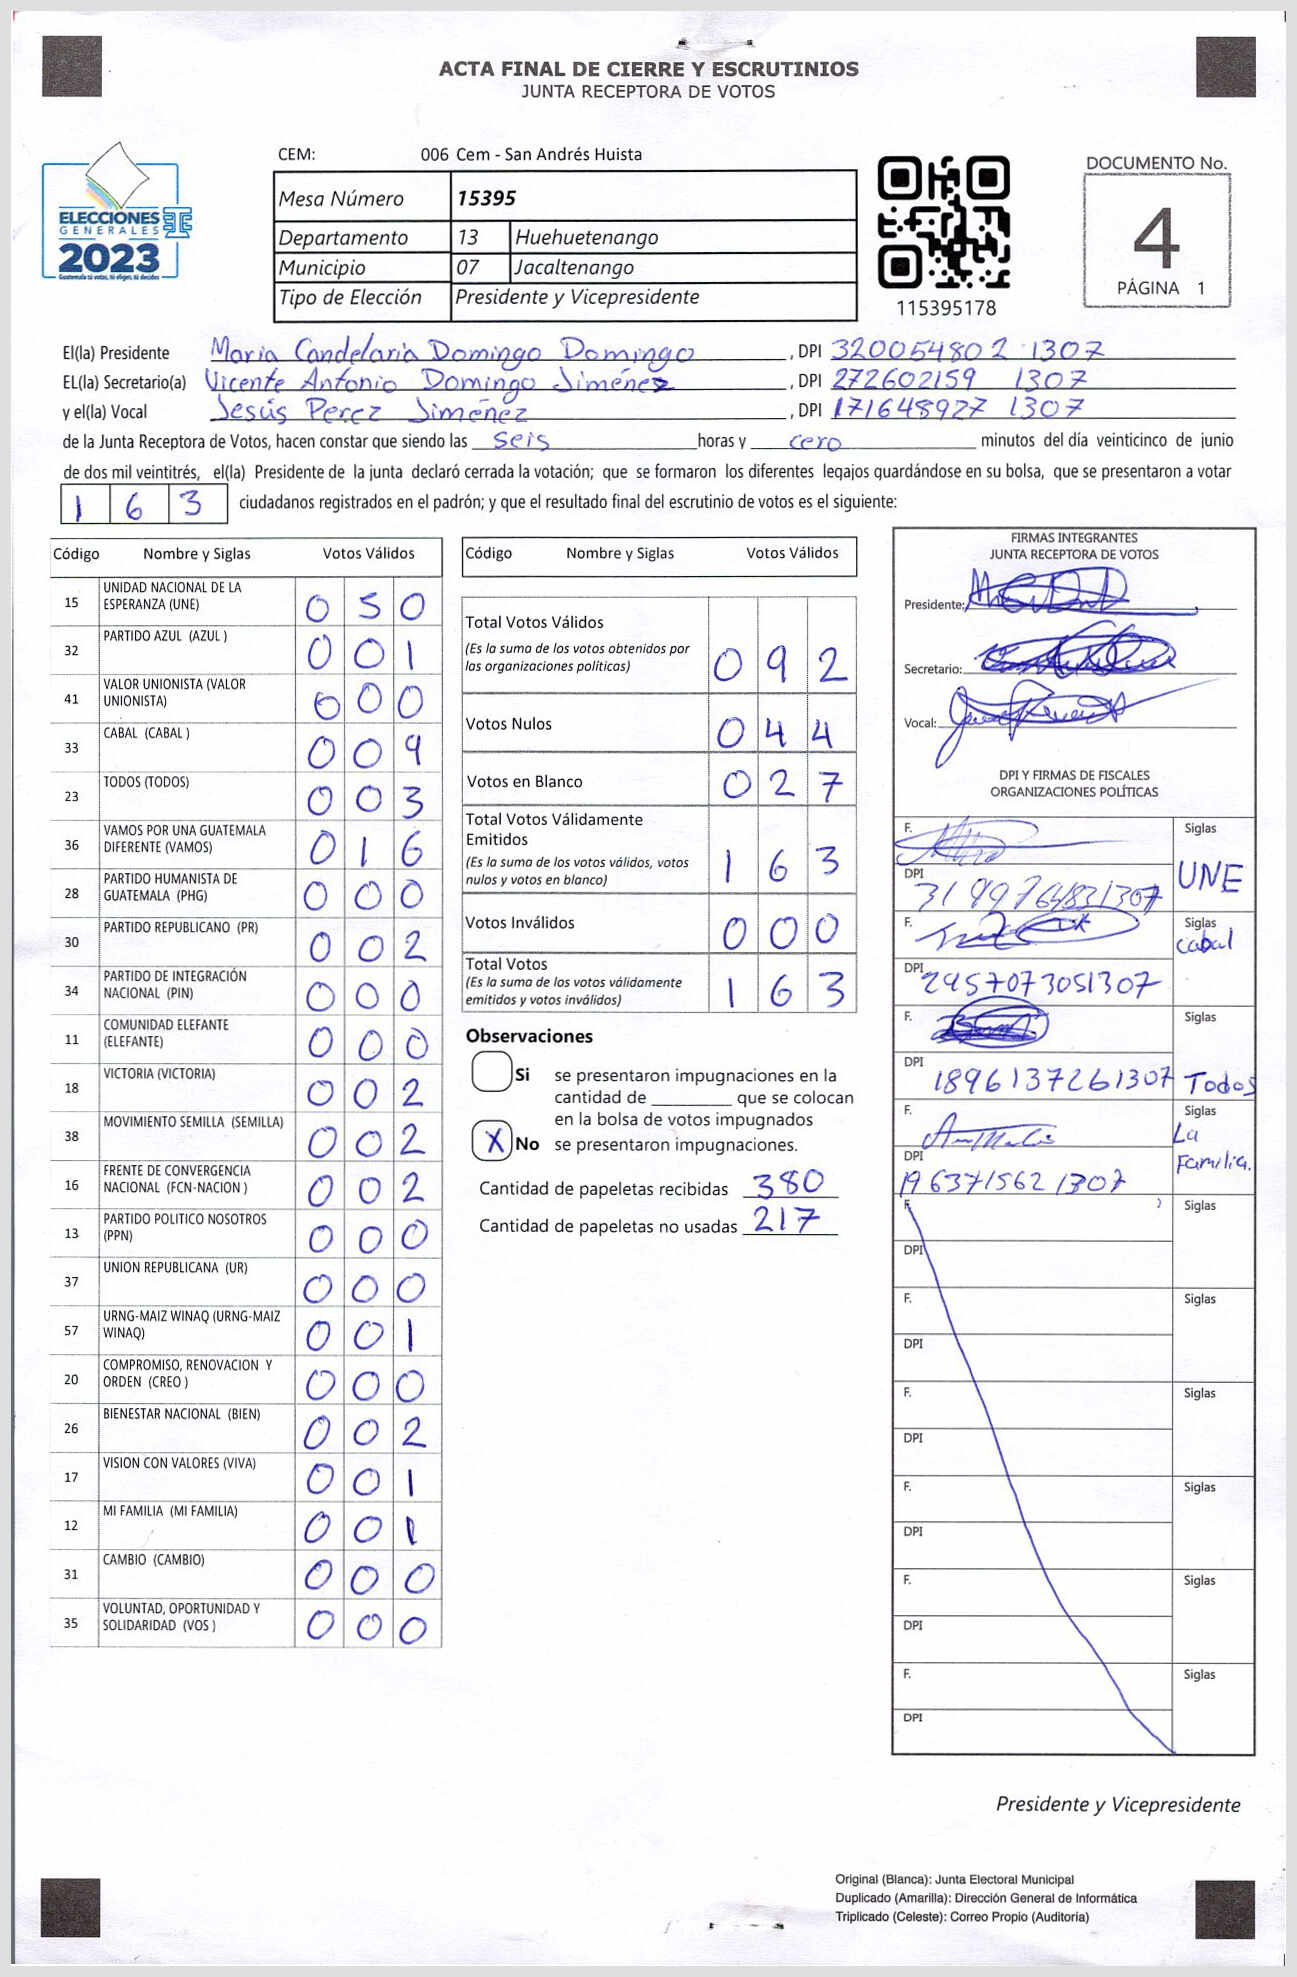 ACTA FINAL DE CIERRE Y ESCRUTINIOS
JUNTA RECEPTORA DE VOTOS
ELECCIONES
GENERALES
2023
Guatemala tú votas, tú eliges, tú decides
CEM: 006 Cem - San Andrés Huista
Mesa Número 15395
Departamento 13 Huehuetenango
Municipio 07 Jacaltenango
Tipo de Elección Presidente y Vicepresidente
115395178
DOCUMENTO No.
4
PÁGINA 1
El(la) Presidente Maria Candelaria Domingo Domingo, DPI 320054802 1307
EL(la) Secretario(a) Vicente Antonio Domingo Jiménez, DPI 272602159 1307
y el(la) Vocal Jesús Perez Jiménez, DPI 171648927 1307
de la Junta Receptora de Votos, hacen constar que siendo las seis horas y cero minutos del día veinticinco de junio
de dos mil veintitrés, el(la) Presidente de la junta declaró cerrada la votación; que se formaron los diferentes legajos guardándose en su bolsa, que se presentaron a votar
163 ciudadanos registrados en el padrón; y que el resultado final del escrutinio de votos es el siguiente:
Código Nombre y Siglas Votos Válidos
15 UNIDAD NACIONAL DE LA ESPERANZA (UNE) 050
32 PARTIDO AZUL (AZUL ) 001
41 VALOR UNIONISTA (VALOR UNIONISTA) 000
33 CABAL (CABAL ) 009
23 TODOS (TODOS) 003
36 VAMOS POR UNA GUATEMALA DIFERENTE (VAMOS) 016
28 PARTIDO HUMANISTA DE GUATEMALA (PHG) 000
30 PARTIDO REPUBLICANO (PR) 002
34 PARTIDO DE INTEGRACIÓN NACIONAL (PIN) 000
11 COMUNIDAD ELEFANTE (ELEFANTE) 000
18 VICTORIA (VICTORIA) 002
38 MOVIMIENTO SEMILLA (SEMILLA) 002
16 FRENTE DE CONVERGENCIA NACIONAL (FCN-NACION ) 002
13 PARTIDO POLITICO NOSOTROS (PPN) 000
37 UNION REPUBLICANA (UR) 000
57 URNG-MAIZ WINAQ (URNG-MAIZ WINAQ) 001
20 COMPROMISO, RENOVACION Y ORDEN (CREO ) 000
26 BIENESTAR NACIONAL (BIEN) 002
17 VISION CON VALORES (VIVA) 001
12 MI FAMILIA (MI FAMILIA) 001
31 CAMBIO (CAMBIO) 000
35 VOLUNTAD, OPORTUNIDAD Y SOLIDARIDAD (VOS ) 000
Código Nombre y Siglas Votos Válidos
Total Votos Válidos
(Es la suma de los votos obtenidos por
las organizaciones políticas) 092
Votos Nulos 044
Votos en Blanco 027
Total Votos Válidamente
Emitidos
(Es la suma de los votos válidos, votos
nulos y votos en blanco) 163
Votos Inválidos 000
Total Votos
(Es la suma de los votos válidamente
emitidos y votos inválidos) 163
Observaciones
Si se presentaron impugnaciones en la
cantidad de ________ que se colocan
en la bolsa de votos impugnados
X No se presentaron impugnaciones.
Cantidad de papeletas recibidas 380
Cantidad de papeletas no usadas 217
FIRMAS INTEGRANTES
JUNTA RECEPTORA DE VOTOS
Presidente:
Secretario:
Vocal:
DPI Y FIRMAS DE FISCALES
ORGANIZACIONES POLÍTICAS
F. Siglas
UNE
DPI 3199764831307
F. Siglas
Cabal
DPI 2957073051307
F. Siglas
DPI 1896137261307 Todos
F. Siglas
La
Familia.
DPI 1963715621307
F. Siglas
DPI
F. Siglas
DPI
F. Siglas
DPI
F. Siglas
DPI
F. Siglas
DPI
F. Siglas
DPI
Presidente y Vicepresidente
Original (Blanca): Junta Electoral Municipal
Duplicado (Amarilla): Dirección General de Informática
Triplicado (Celeste): Correo Propio (Auditoría)